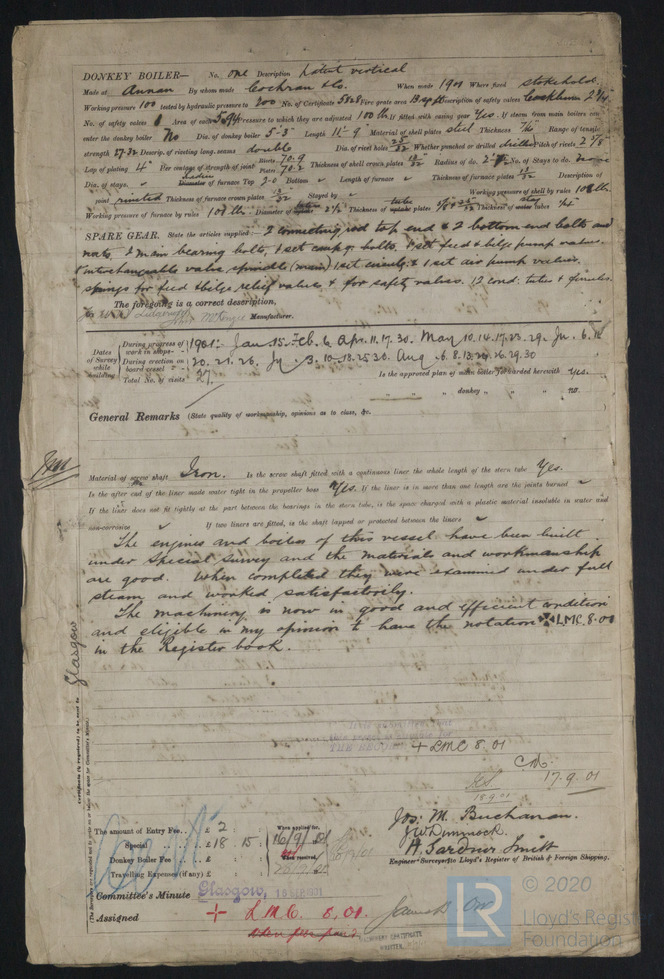 DONKEY BOILER— No. One Description Patent vertical
Made at Annan By whom made Cochran & Co. When made 1901 Where fixed stokehold
Working pressure 100 tested by hydraulic pressure to 200 No. of Certificate 5828 Fire grate area Description of safety valves Cockburn 2 1/4"
No. of safety valves Area of each Pressure to which they are adjusted 100 lb. If fitted with easing gear Yes. If steam from main boilers can
enter the donkey boiler No Dia. of donkey boiler 5'3" Length 11'-9" Material of shell plates steel Thickness Range of tensile
strength 27-32 Descrip. of riveting long. seams double Dia. of rivet holes 25/32 Whether punched or drilled drilled Pitch of rivets 2 5/8
Lap of plating 4" Per centage of strength of joint Rivets 70.9 Plates 70.2 Thickness of shell crown plates 13/32 Radius of do. No. of Stays to do. none
Dia. of stays. Diameter of furnace Top Bottom Length of furnace Thickness of furnace plates 13/32 Description of
joint riveted Thickness of furnace crown plates 13/32 Stayed by Working pressure of shell by rules 108 lb
Working pressure of furnace by rules 108 lb. Diameter of 2 1/2" Thickness of tube plates Thickness of stay tubes
SPARE GEAR. State the articles supplied:— 2 connecting rod top end & 2 bottom end bolts and
nuts, 2 main bearing bolts, 1 set coupg. bolts, 1 set feed & bilge pump valves.
1 interchangeable valve spindle (main) 1 set & 1 set air pump valves.
springs for feed & bilge relief valves & for safety valves. 12 cond. tubes & ferrules.
The foregoing is a correct description,
Manufacturer.
Dates of Survey while building
During progress of work in shops— 1901. Jan. 15. Feb. 6. Apr. 11. 17. 30. May 10. 14. 17. 23. 29. Ju. 6. 18
During erection on board vessel— 20. 21. 26. Jy. 3. 10. 13. 25. 30. Aug. 6. 8. 13. 26. 29. 30
Total No. of visits 27. Is the approved plan of main boiler forwarded herewith yes.
" " " donkey " " " no.
General Remarks (State quality of workmanship, opinions as to class, &c.
Material of screw shaft Iron. Is the screw shaft fitted with a continuous liner the whole length of the stern tube Yes.
Is the after end of the liner made water tight in the propeller boss Yes. If the liner is in more than one length are the joints burned "
If the liner does not fit tightly at the part between the bearings in the stern tube, is the space charged with a plastic material insoluble in water and
non-corrosive " If two liners are fitted, is the shaft lapped or protected between the liners "
The engines and boilers of this vessel have been built
under Special Survey and the materials and workmanship
are good. When completed they were examined under full
steam and worked satisfactorily.
The machinery is now in good and efficient condition
and eligible in my opinion to have the notation ✠ LMC. 8.01
in the Register book.
Glasgow
+ LMC 8.01
17.9.01
18.9.01
Jos. M. Buchanan.
J W Dimmock.
H. Gardner Smith
Engineer Surveyors to Lloyd's Register of British & Foreign Shipping.
The amount of Entry Fee.. £ 2 : : When applied for,
Special .. .. £ 18 : 15 : 16/9/01
Donkey Boiler Fee .. £ : : When received,
Travelling Expenses (if any) £ : :
Committee's Minute Glasgow, 18 SEP 1901
Assigned + L.M.C. 8,01.
MACHINERY CERTIFICATE
WRITTEN
LR
© 2020
Lloyd's Register
Foundation